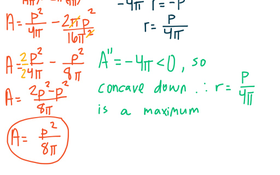 -4π r = -P
A = P²/4π - 2πP²/16π²
r = P/4π
A = 2/2 P²/4π - P²/8π
A = 2P²-P²/8π
A = P²/8π
A" = -4π < 0, so
concave down ∴ r = P/4π
is a maximum